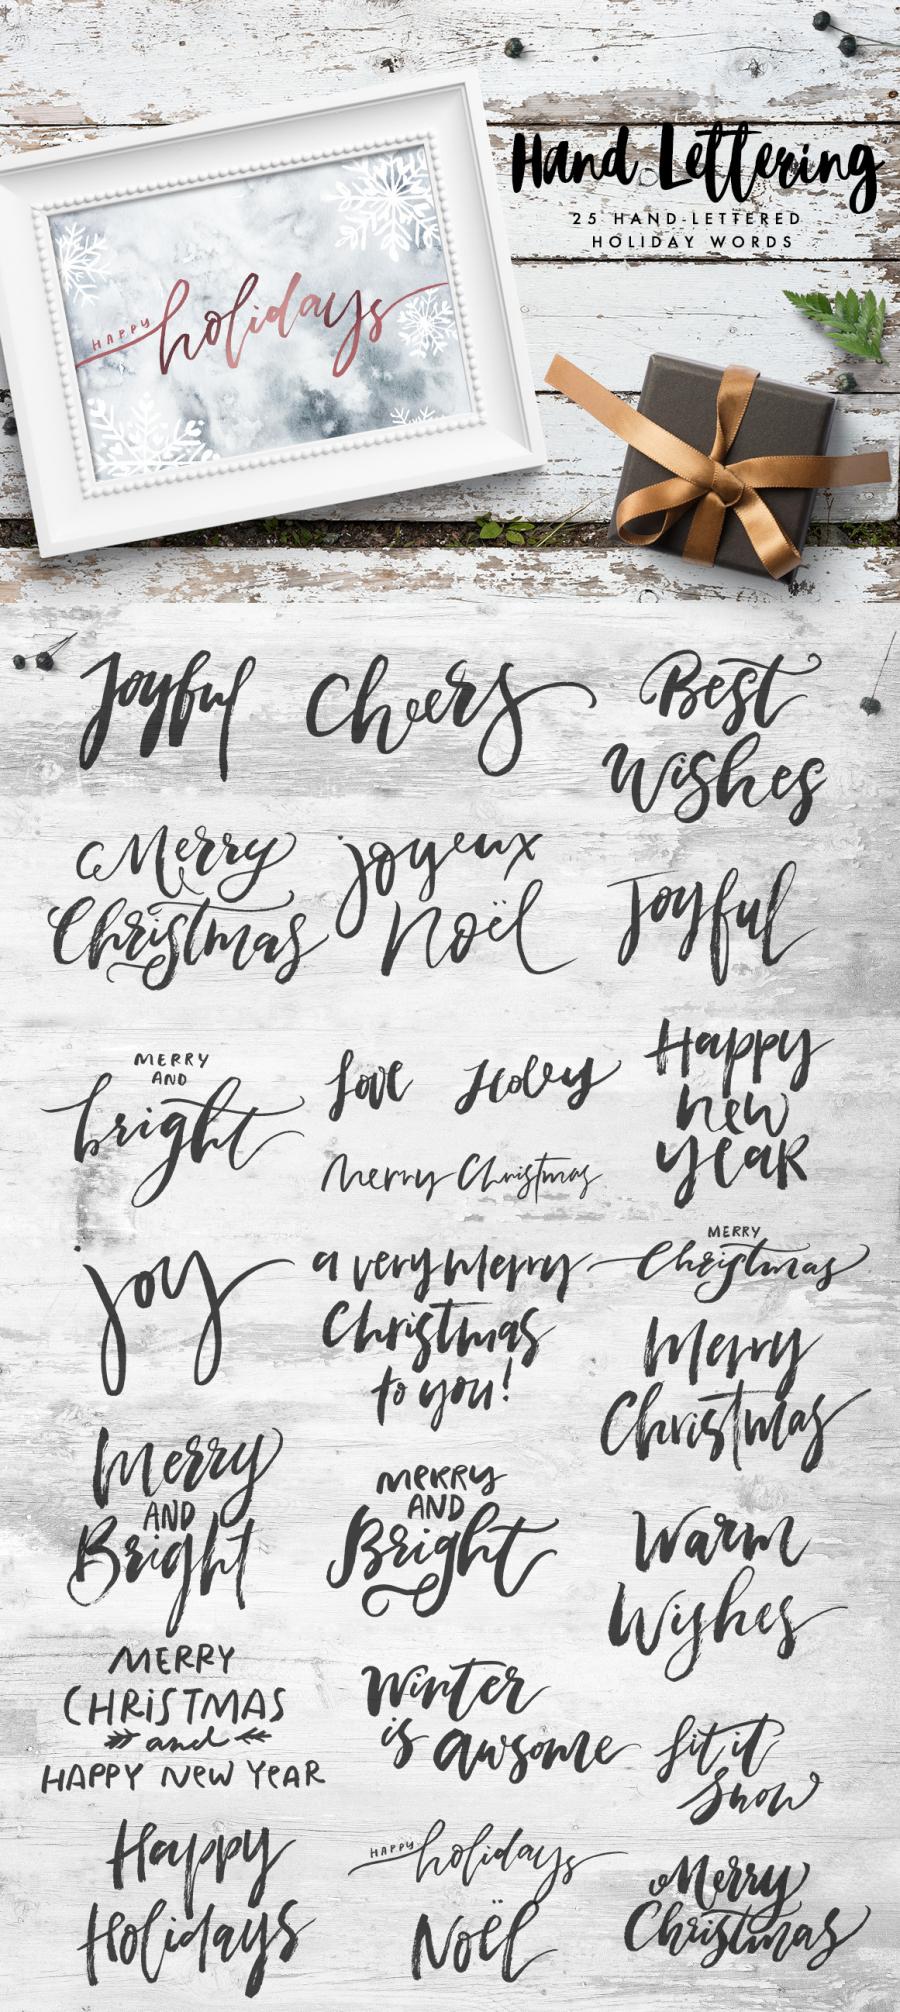 Hand Lettering
25 HAND-LETTERED
HOLIDAY WORDS
HAPPY holidays
Joyful
Cheers
Best
Wishes
Merry
Christmas
joyeux
Noël
Joyful
MERRY
AND
bright
Love
Holly
Merry Christmas
Happy
new
year
joy
a very Merry
Christmas
to you!
MERRY
Christmas
Merry
Christmas
Merry
AND
Bright
MERRY
AND
Bright
Warm
Wishes
MERRY
CHRISTMAS
and
HAPPY NEW YEAR
Winter
is awsome
Let it
Snow
Happy
Holidays
HAPPY holidays
Noël
Merry
Christmas